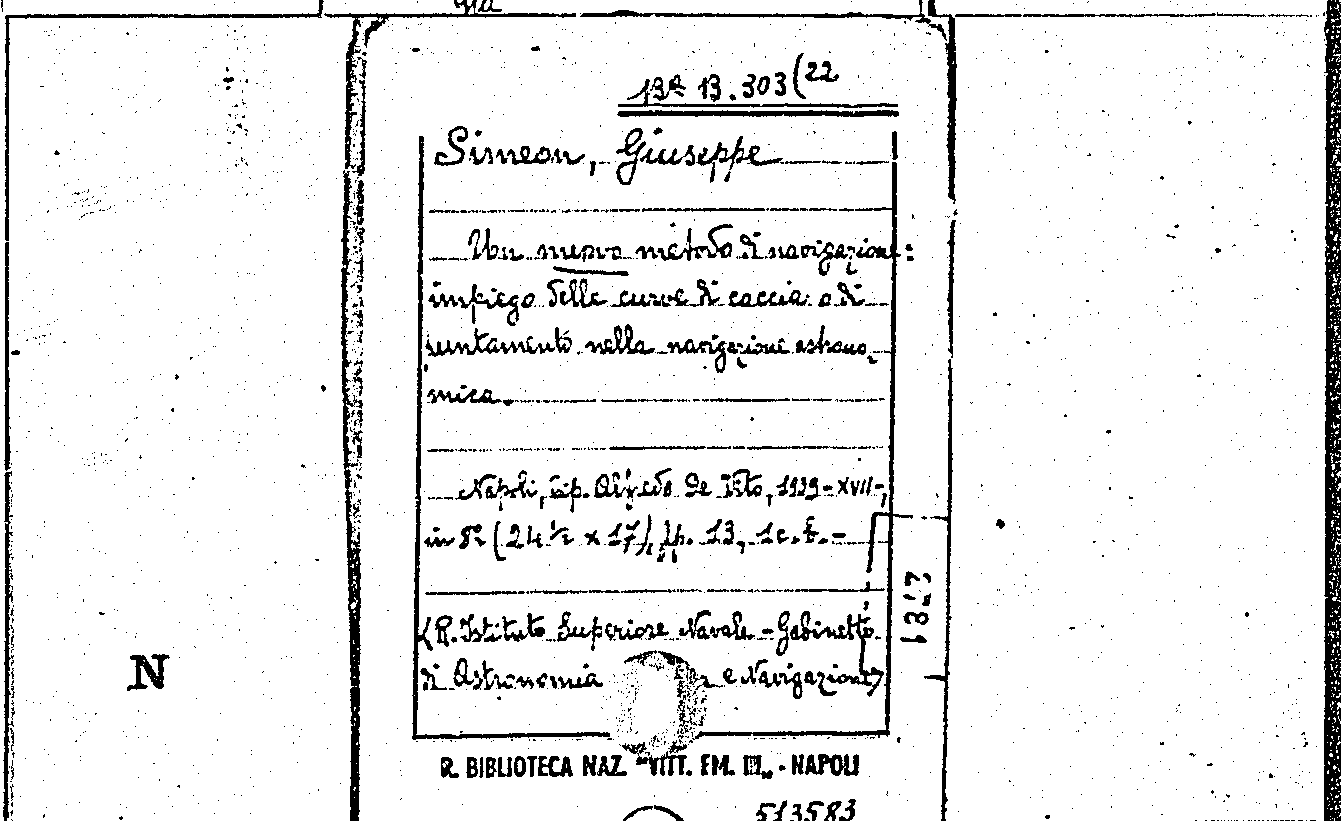 13ª B. 303(22
Simeon, Giuseppe
Un nuovo metodo di navigazione:
impiego delle curve di caccia o di
puntamento nella navigazione astrono-
mica.
Napoli, tip. Alfredo De Vito, 1939-XVII-,
in 8º (24 ½ x 17), pp. 13, 1 c. b. -
(R. Istituto Superiore Navale - Gabinetto
di Astronomia e Navigazione)
1827
N
R. BIBLIOTECA NAZ. "VITT. EM. III„ - NAPOLI
513583